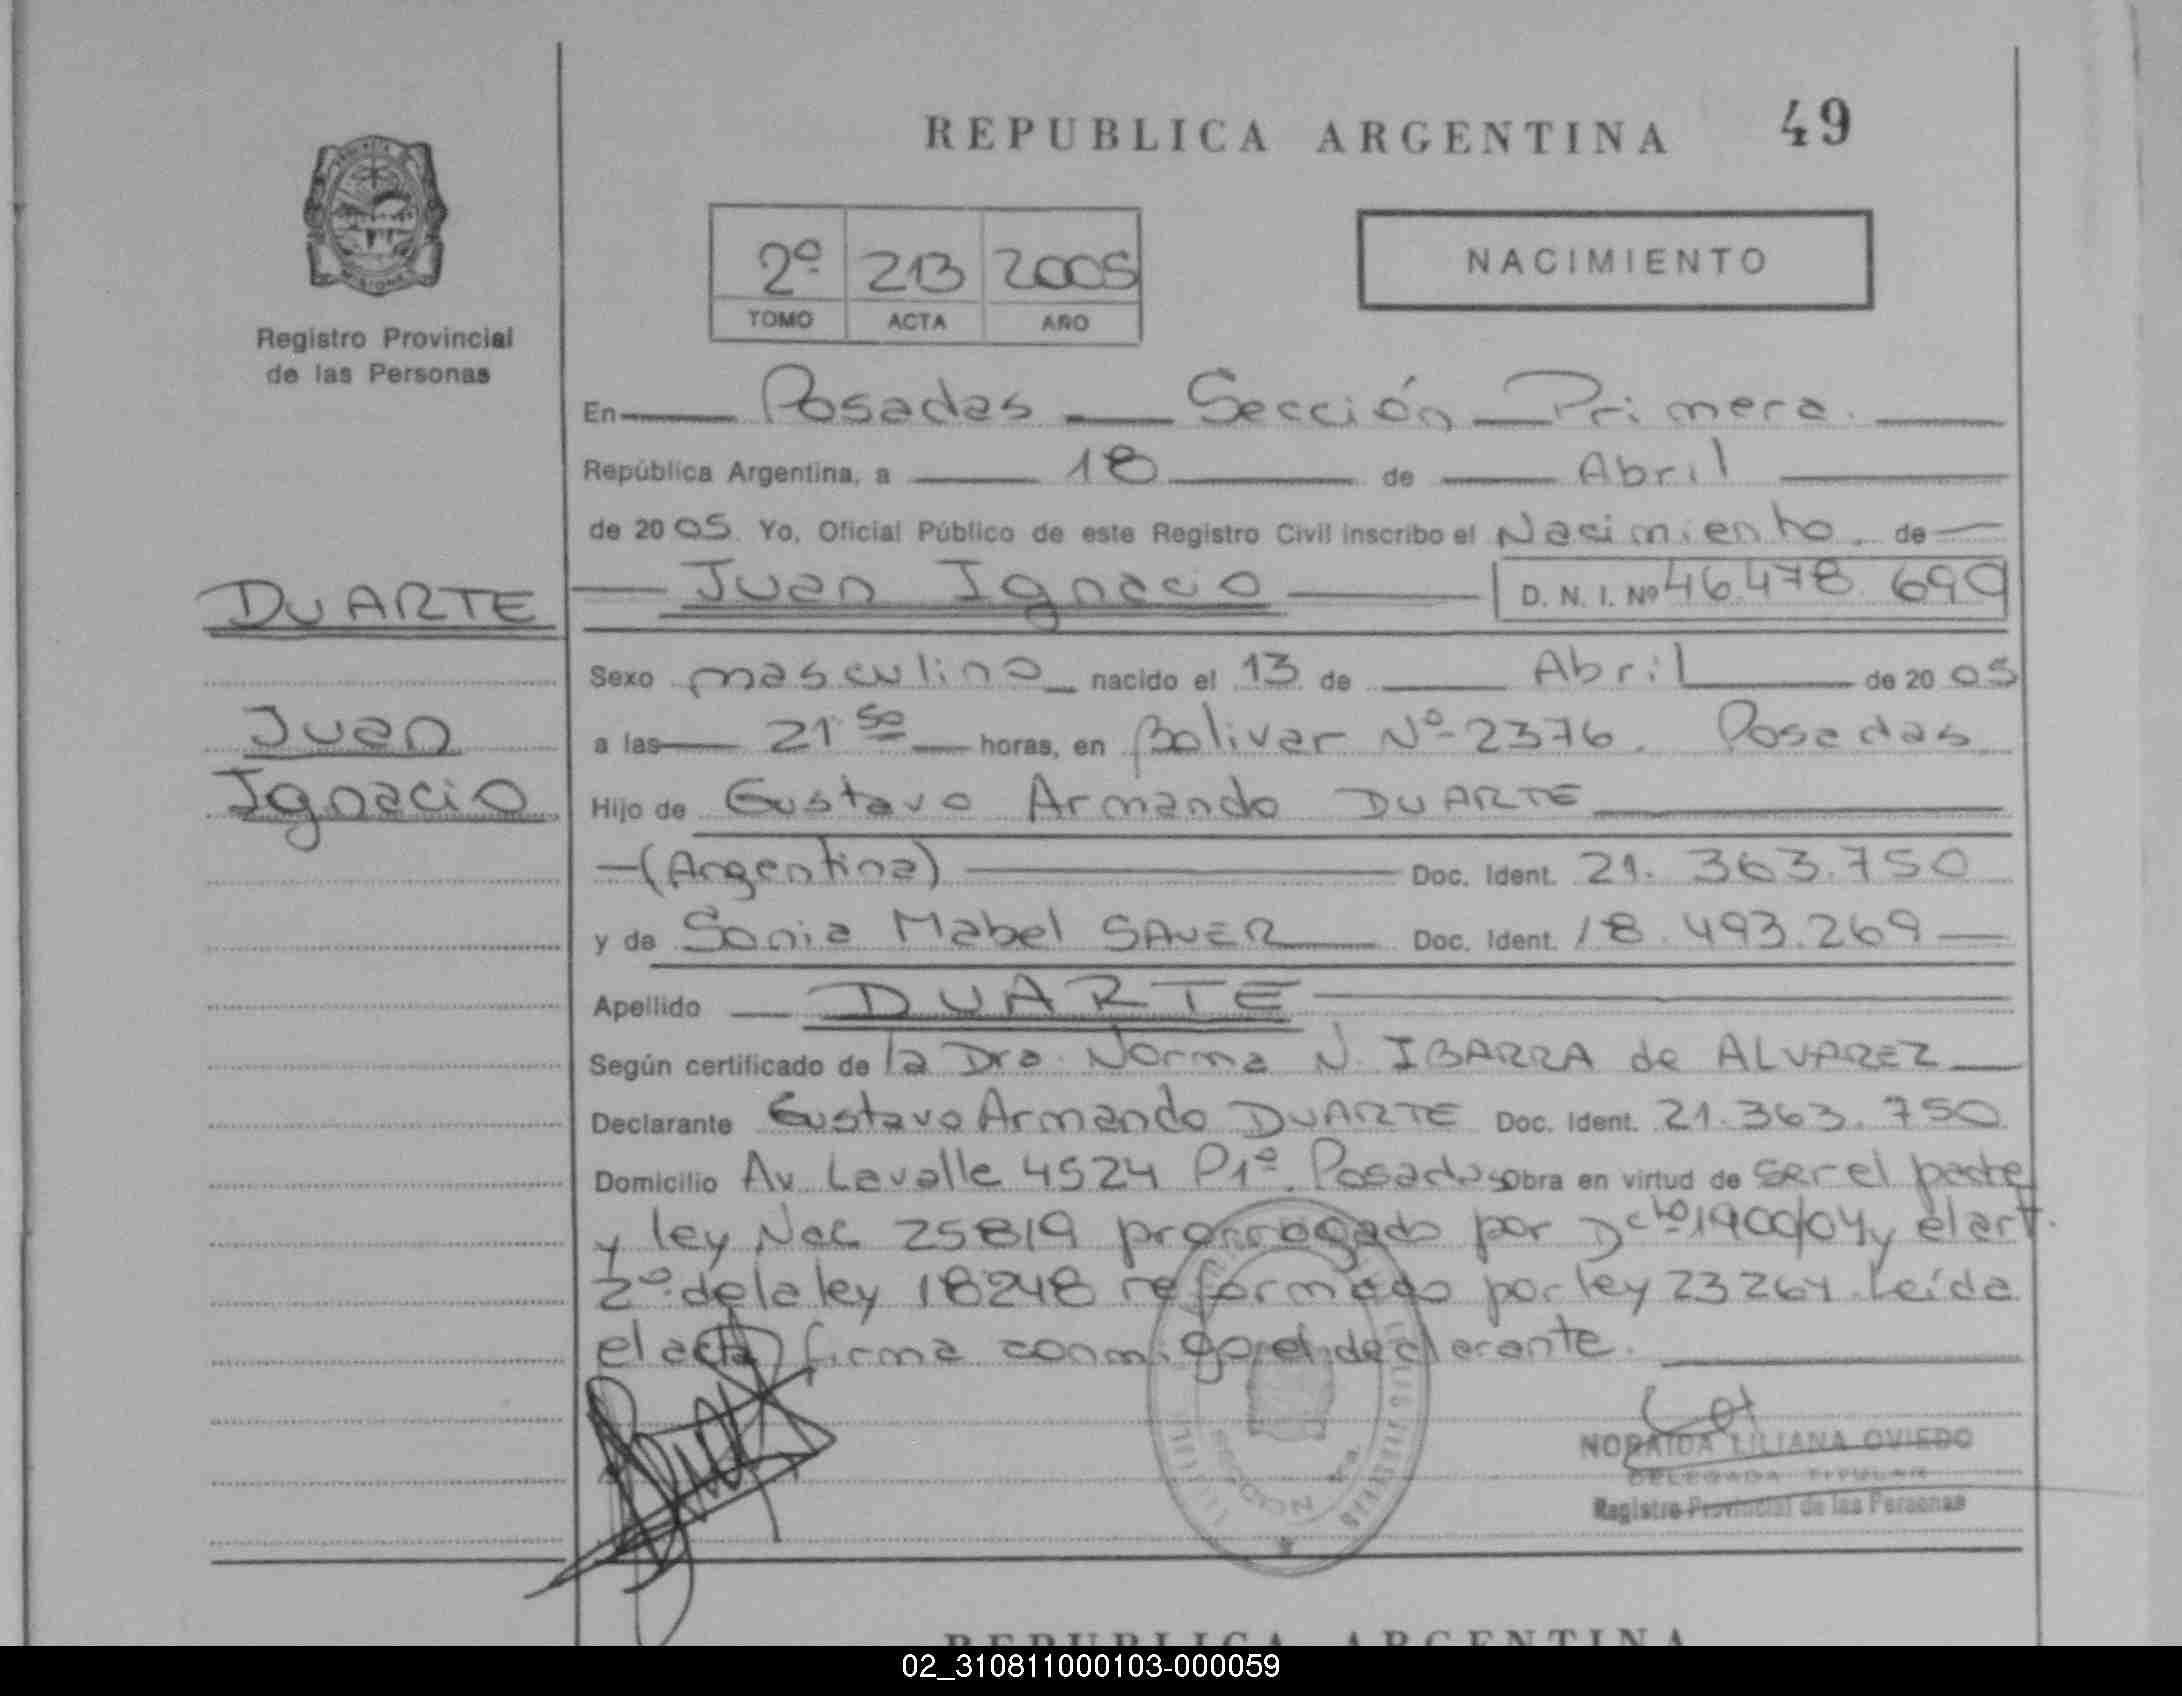 REPUBLICA ARGENTINA 49
2º 213 2005
TOMO ACTA AÑO
NACIMIENTO
Registro Provincial
de las Personas
En Posadas Sección Primera.
República Argentina, a 18 de Abril
de 2005. Yo, Oficial Público de este Registro Civil inscribo el Nacimiento de
DUARTE
Juan Ignacio D. N. I. Nº 46.478.690
Sexo masculino nacido el 13 de Abril de 2005
Juan
a las 21.50 horas, en Bolivar Nº 2376. Posadas
Ignacio
Hijo de Gustavo Armando DUARTE
(Argentina) Doc. Ident. 21.363.750
y de Sonia Mabel SAUER Doc. Ident. 18.493.269
Apellido DUARTE
Según certificado de la Dra. Norma N. IBARRA de ALVAREZ
Declarante Gustavo Armando DUARTE Doc. Ident. 21.363.750
Domicilio Av. Lavalle 4524 P1º. Posadas Obra en virtud de ser el padre
y ley Nac. 25819 prorrogado por Dcto 1900/04 y el art.
2º de la ley 18248 reformado por ley 23264. Leída
el acta firma conmigo el declarante.
NORAIDA LILIANA OVIEDO
DELEGADA TITULAR
Registro Provincial de las Personas
SECCION 1ra.
REPUBLICA ARGENTINA
02_310811000103-000059